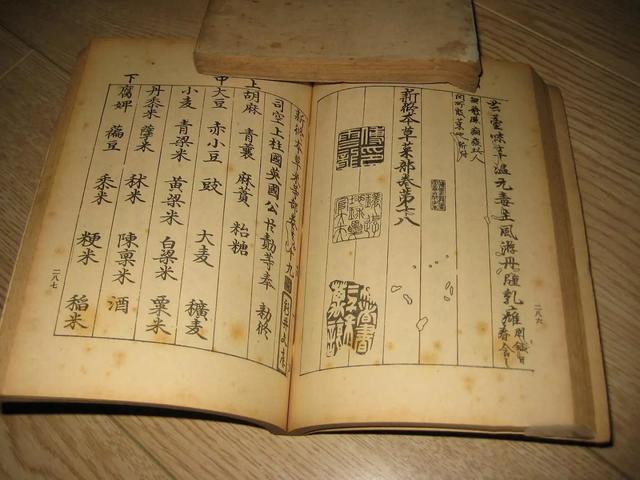 芸臺味辛溫无毒主風游丹腫乳癰
新修本草菜部卷第十八
二八六
新修本草米等部卷第十九
司空上柱國英國公臣勣等奉 勅修
上 胡麻 青蘘 麻蕡 糖
中 大豆 赤小豆 豉 大麦 穬麦
小麦 青梁米 黄梁米 白梁米 粟米
丹黍米 糵米 秫米 陳稟米 酒
下 腐婢 藊豆 黍米 粳米 稲米
二八七